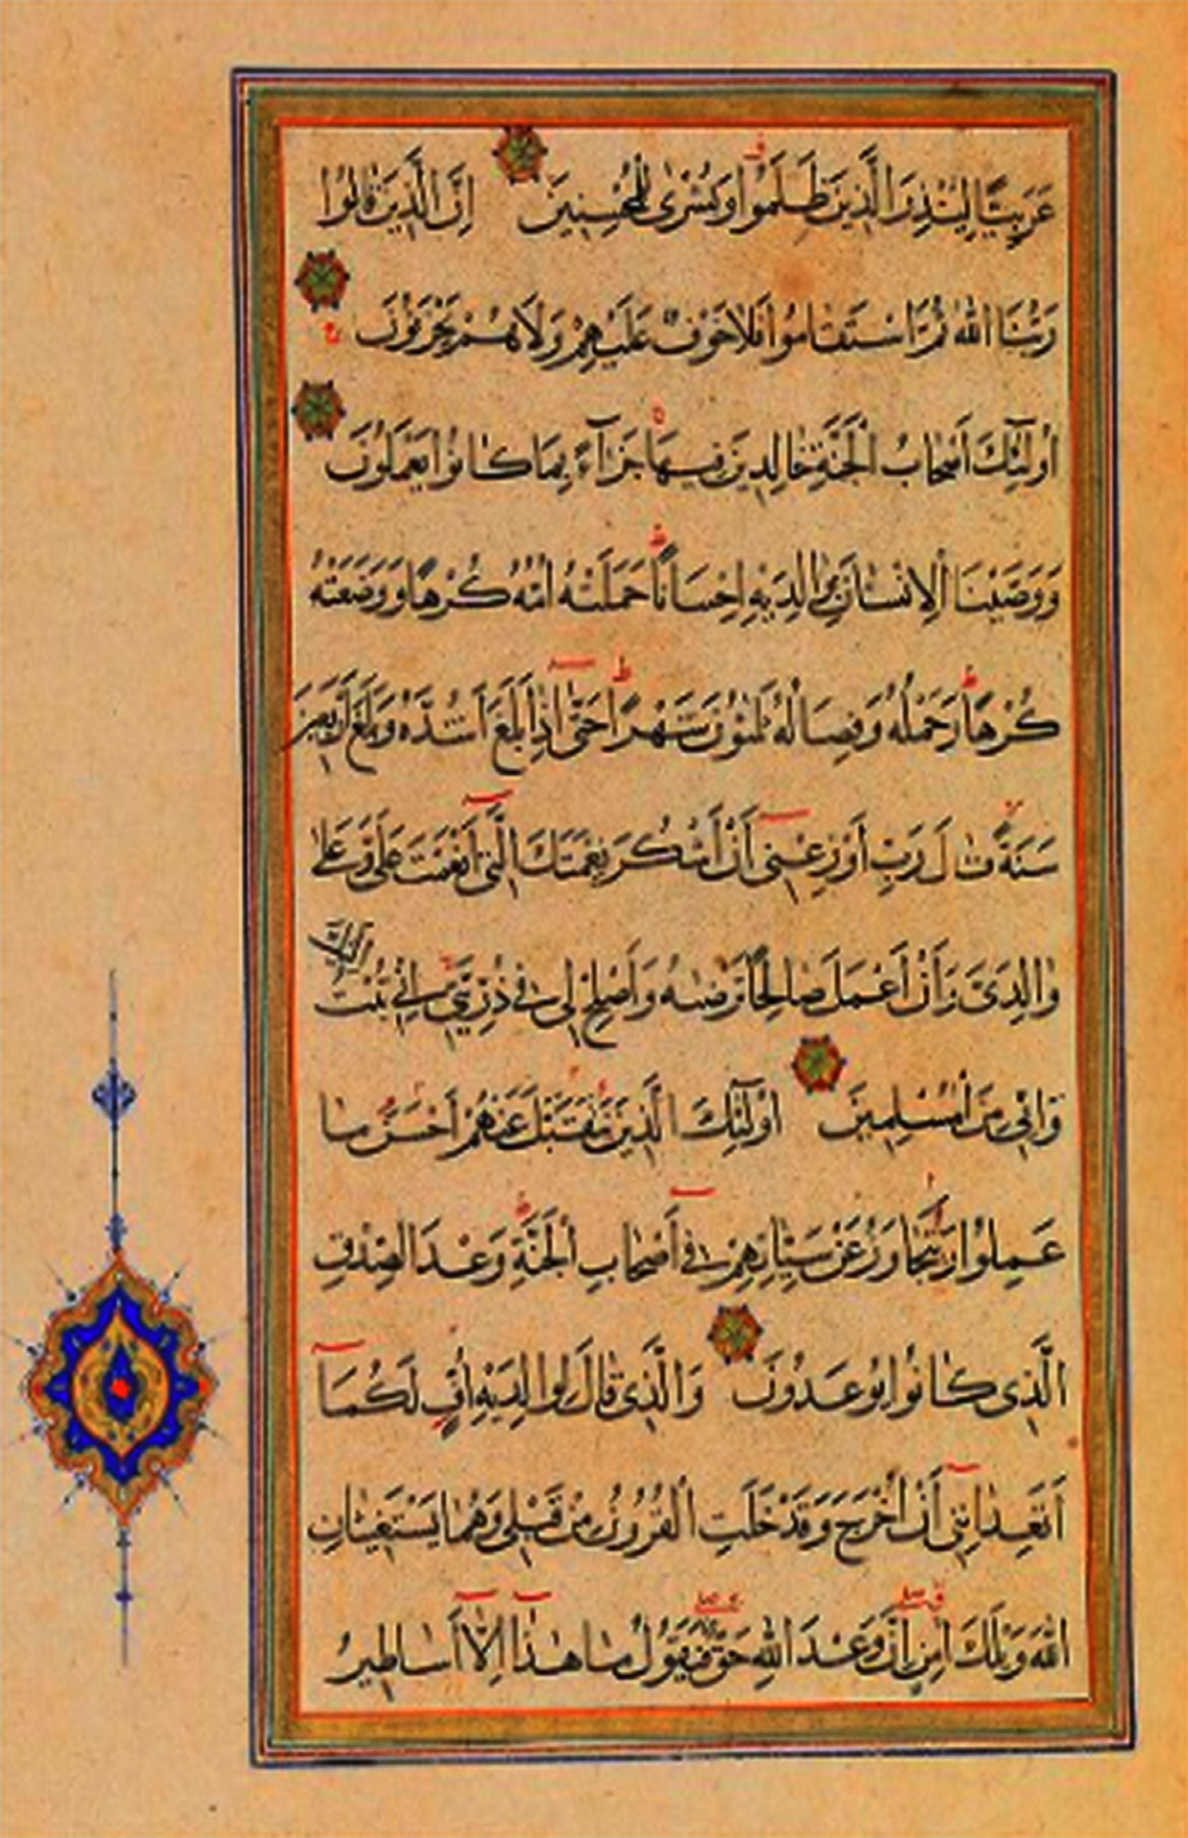 عَرَبِيًّا لِيُنْذِرَ الَّذِينَ ظَلَمُوا وَبُشْرٰى لِلْمُحْسِنِينَ اِنَّ الَّذِينَ قَالُوا
رَبُّنَا اللّٰهُ ثُمَّ اسْتَقَامُوا فَلَا خَوْفٌ عَلَيْهِمْ وَلَا هُمْ يَحْزَنُونَ
اُولٰٓئِكَ اَصْحَابُ الْجَنَّةِ خَالِدِينَ فِيهَا جَزَآءً بِمَا كَانُوا يَعْمَلُونَ
وَوَصَّيْنَا الْاِنْسَانَ بِوَالِدَيْهِ اِحْسَانًا حَمَلَتْهُ اُمُّهُ كُرْهًا وَوَضَعَتْهُ
كُرْهًا وَحَمْلُهُ وَفِصَالُهُ ثَلٰثُونَ شَهْرًا حَتّٰٓى اِذَا بَلَغَ اَشُدَّهُ وَبَلَغَ اَرْبَعِينَ
سَنَةً قَالَ رَبِّ اَوْزِعْنِٓى اَنْ اَشْكُرَ نِعْمَتَكَ الَّتِٓى اَنْعَمْتَ عَلَىَّ وَعَلٰى
وَالِدَىَّ وَاَنْ اَعْمَلَ صَالِحًا تَرْضٰيهُ وَاَصْلِحْ لِى فِى ذُرِّيَّتِى اِنِّى تُبْتُ اِلَيْكَ
وَاِنِّى مِنَ الْمُسْلِمِينَ اُولٰٓئِكَ الَّذِينَ نَتَقَبَّلُ عَنْهُمْ اَحْسَنَ مَا
عَمِلُوا وَنَتَجَاوَزُ عَنْ سَيِّاٰتِهِمْ فِٓى اَصْحَابِ الْجَنَّةِ وَعْدَ الصِّدْقِ
الَّذِى كَانُوا يُوعَدُونَ وَالَّذِى قَالَ لِوَالِدَيْهِ اُفٍّ لَكُمَآ
اَتَعِدَانِنِٓى اَنْ اُخْرَجَ وَقَدْ خَلَتِ الْقُرُونُ مِنْ قَبْلِى وَهُمَا يَسْتَغِيثَانِ
اللّٰهَ وَيْلَكَ اٰمِنْ اِنَّ وَعْدَ اللّٰهِ حَقٌّ فَيَقُولُ مَا هٰذَٓا اِلَّآ اَسَاطِيرُ